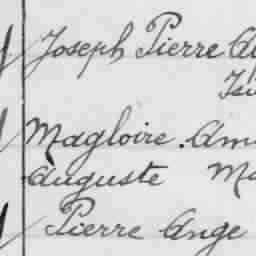 Joseph Pierre
Magloire
Auguste
Pierre Ange